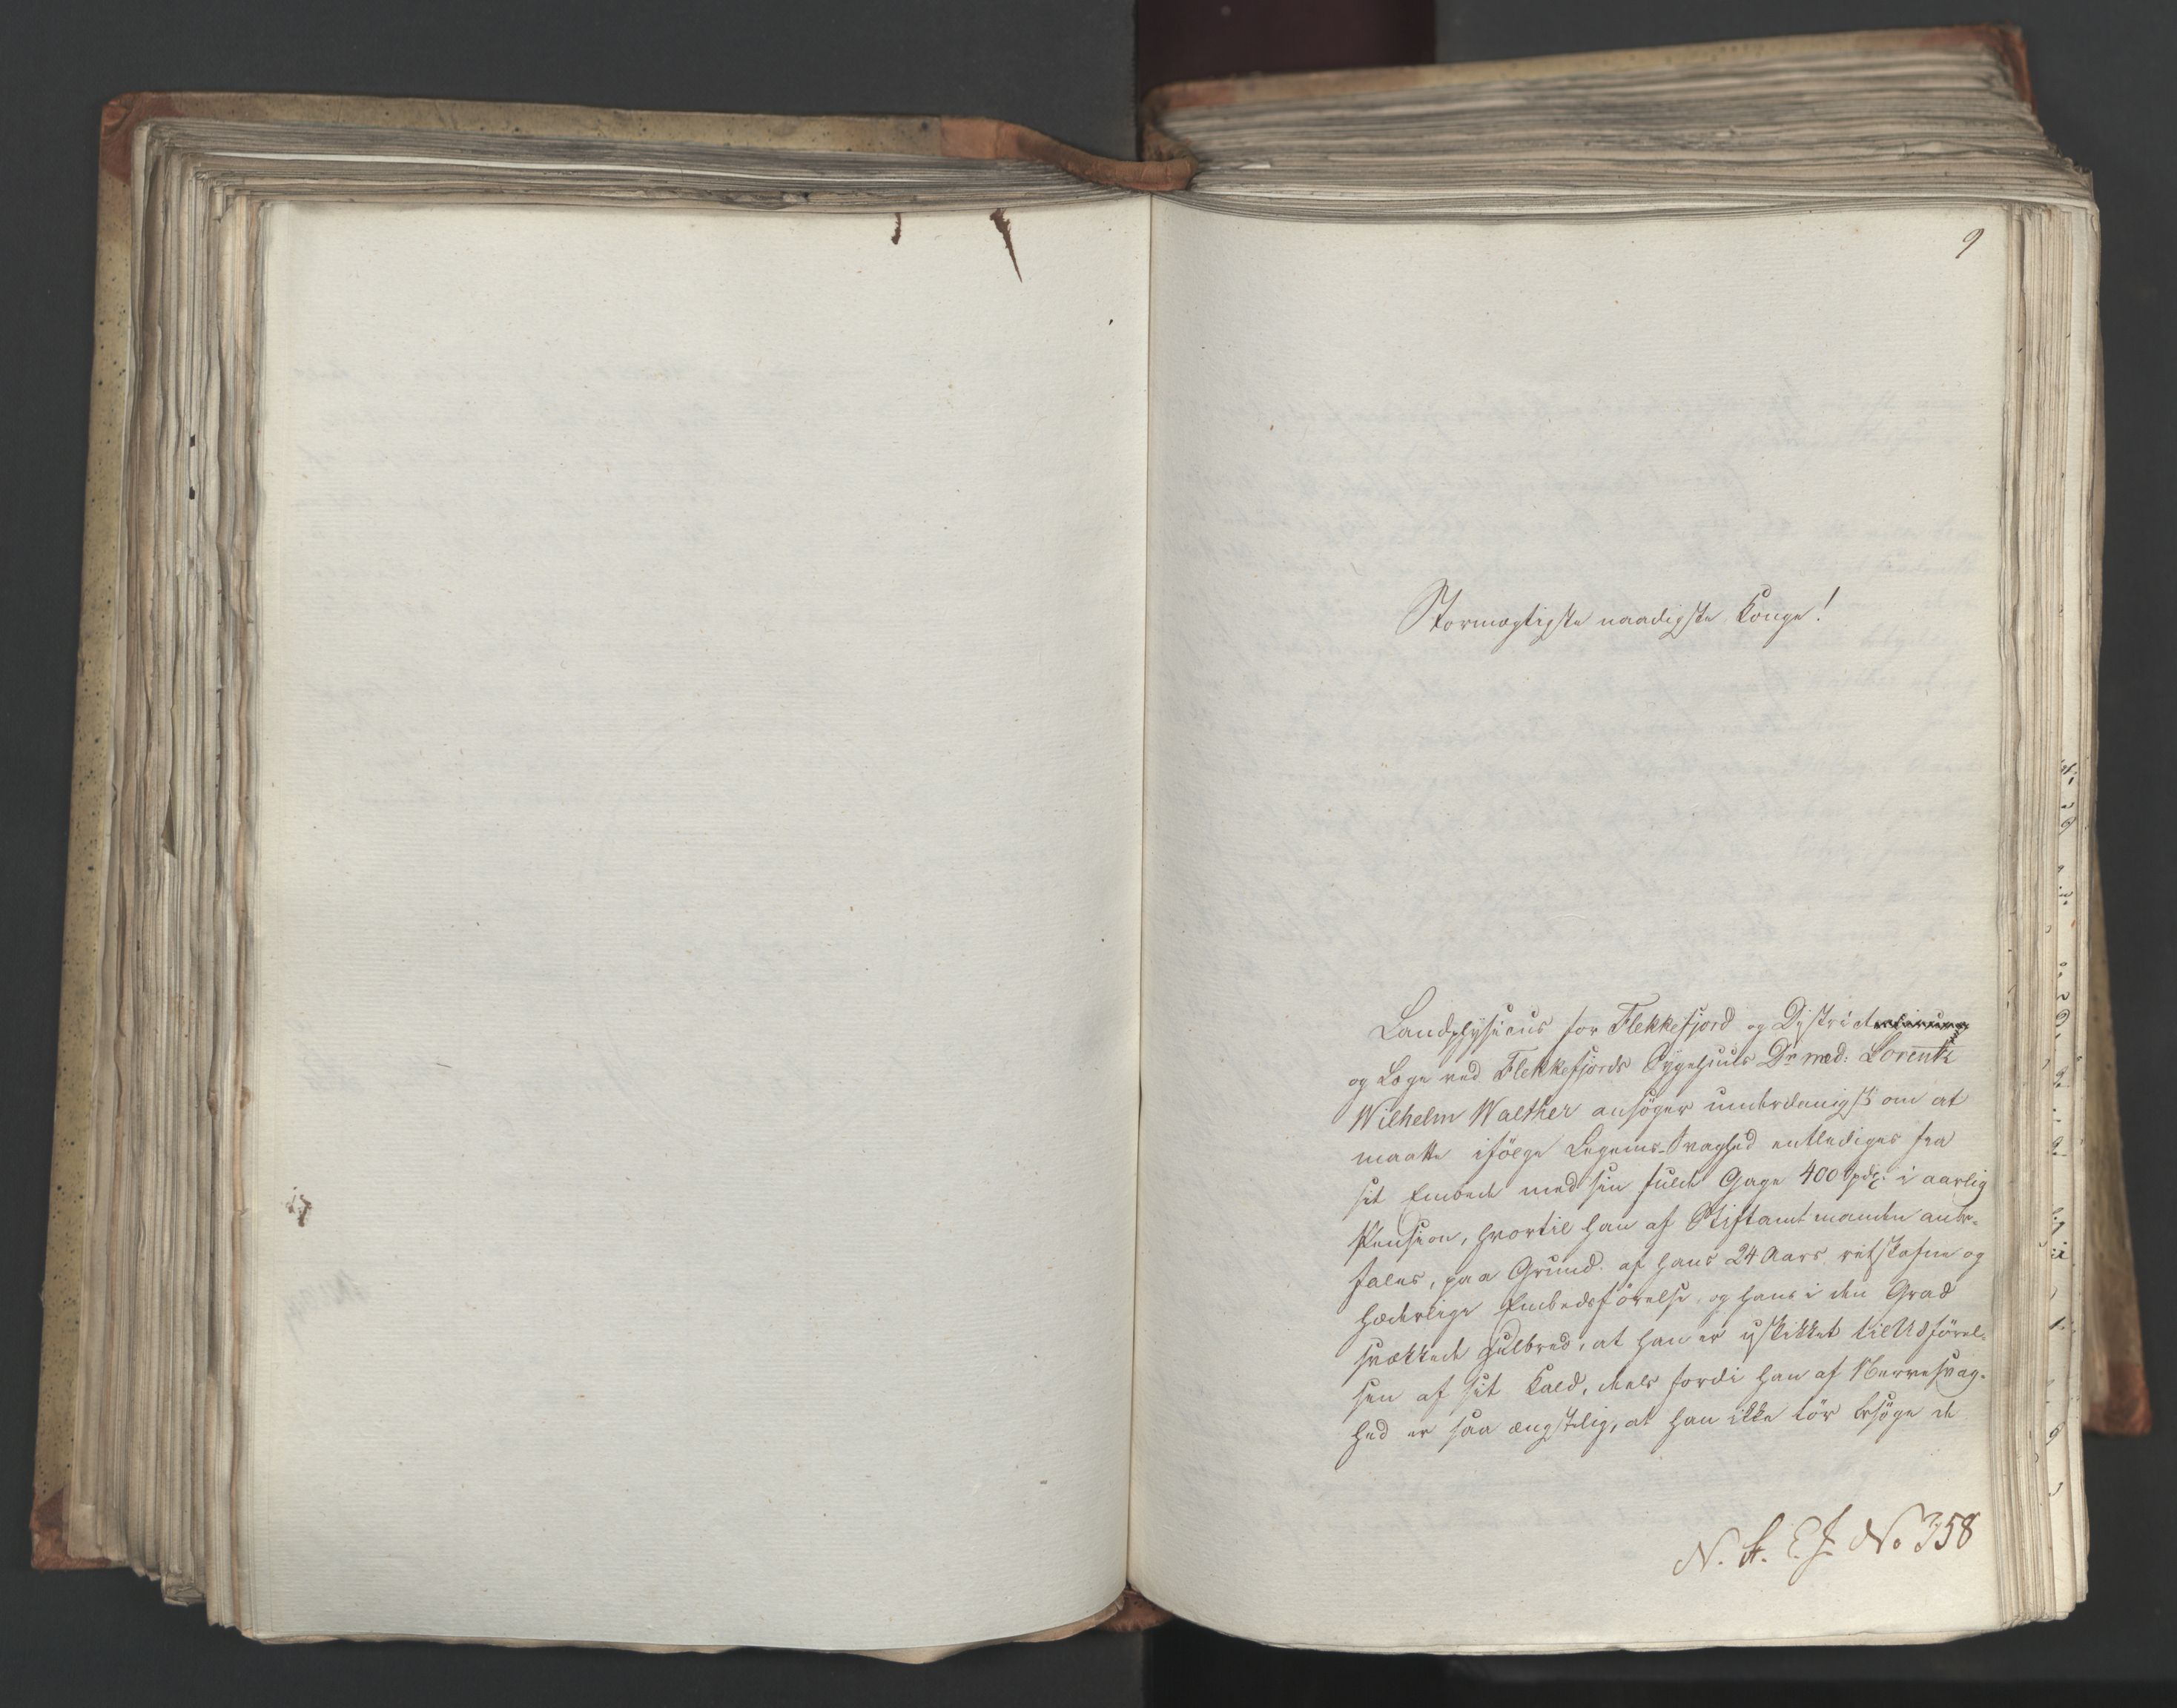 9
Stormægtigste naadigste Konge!
Landphysicus for Flekkefjord og Distrikt
og Læge ved Flekkefjords Sygehuus Dr med: Lorentz
Wilhelm Walther ansøger underdanigst om at
maatte ifølge Legems-Svaghed entlediges fra
sit Embede med sin fulde Gage 400 Spdlr: i aarlig
Pension, hvortil han af Stiftamtmanden anbe-
fales, paa Grund af hans 24 Aars retskafne og
hæderlige Embedsførelse og hans i den Grad
svækkede Helbred, at han er uskikket til Udførel-
sen af sit Kald, deels fordi han af Nervesvag-
hed er saa ængstelig, at han ikke tør besøge de
N. A. E. J. No 358